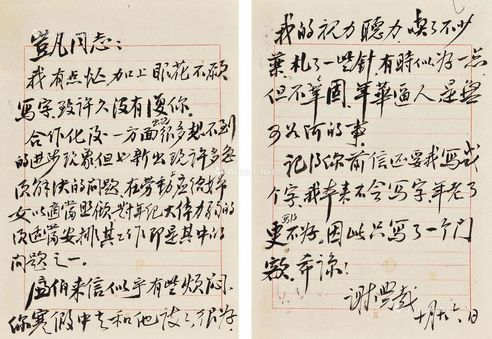 岂凡同志：
我有点忙，加上眼花不愿
写字，致许久没有复你。
合作化后一方面出现很多想不到
的进步现象，但也新出现许多急
须解决的问题，在劳动应给妇
女以适当照顾，对年纪大体力弱的
须适当安排其工作，即是其中的
问题之一。
来信似乎有些烦闷，
你寒假中去和他谈谈很好。
我的视力听力，吃了不少
药，扎了一些针，有时似好一点，
但不巩固，年华逼人是无
可如何的事。
记得你前信还要我写几
个字，我本来不会写字，年老了
更不好，因此只写了一个门
额，希谅！
谢觉哉
十月十六日